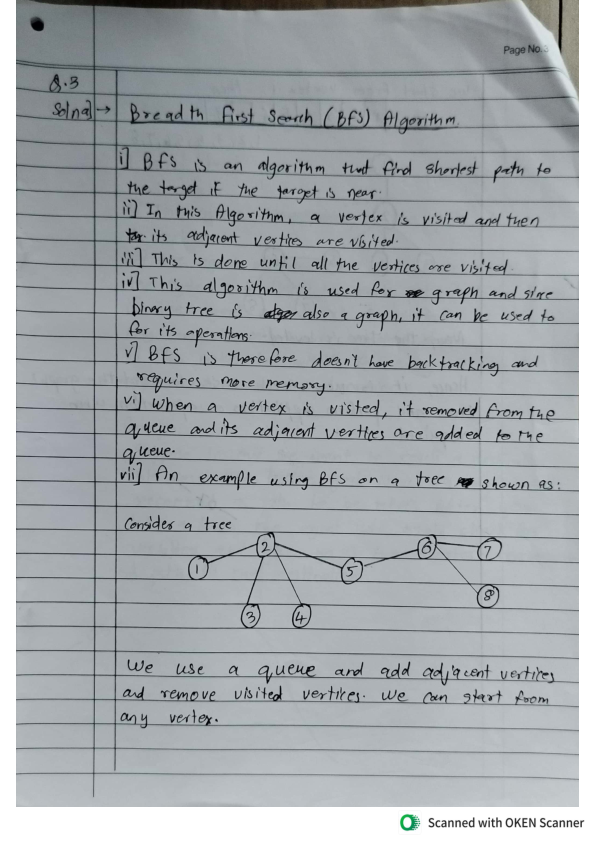 Page No.
Q.3
Soln a] → Breadth First Search (BFS) Algorithm.
i] BFS is an algorithm that find shortest path to
the target if the target is near.
ii] In this Algorithm, a vertex is visited and then
its adjacent vertices are visited.
iii] This is done until all the vertices are visited.
iv] This algorithm is used for graph and since
binary tree is also a graph, it can be used to
for its operations.
v] BFS is therefore doesn't have backtracking and
requires more memory.
vi] When a vertex is visted, it removed from the
queue and its adjacent vertices are added to the
queue.
vii] An example using BFS on a tree shown as:
Consider a tree
2 6 7
1 5
8
3 4
We use a queue and add adjacent vertices
and remove visited vertices. We can start from
any vertex.
Scanned with OKEN Scanner